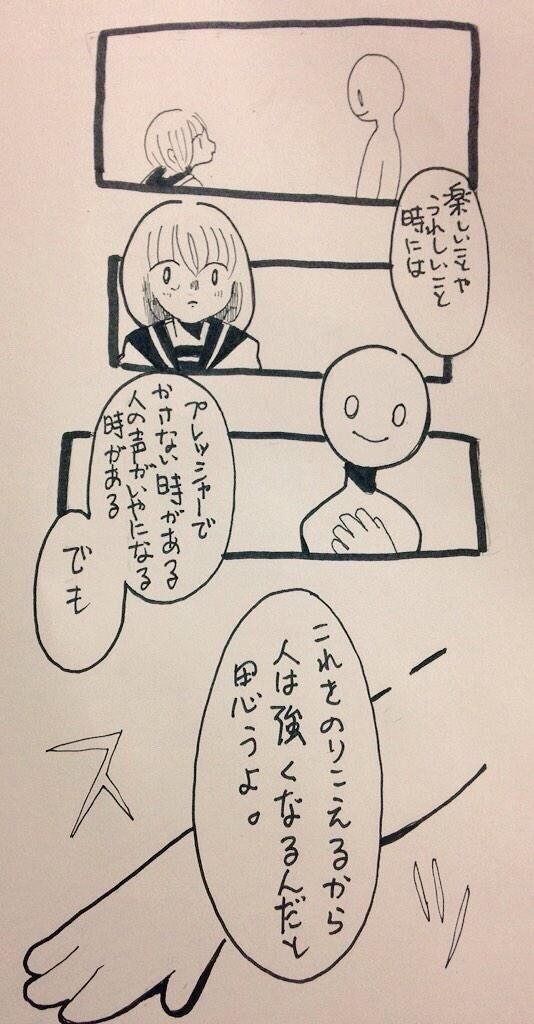 楽しいことや
うれしいこと
時には
プレッシャーで
かさない時がある
人の声がいやになる
時がある
でも
これをのりこえるから
人は強くなるんだと
思うよ。
スッ